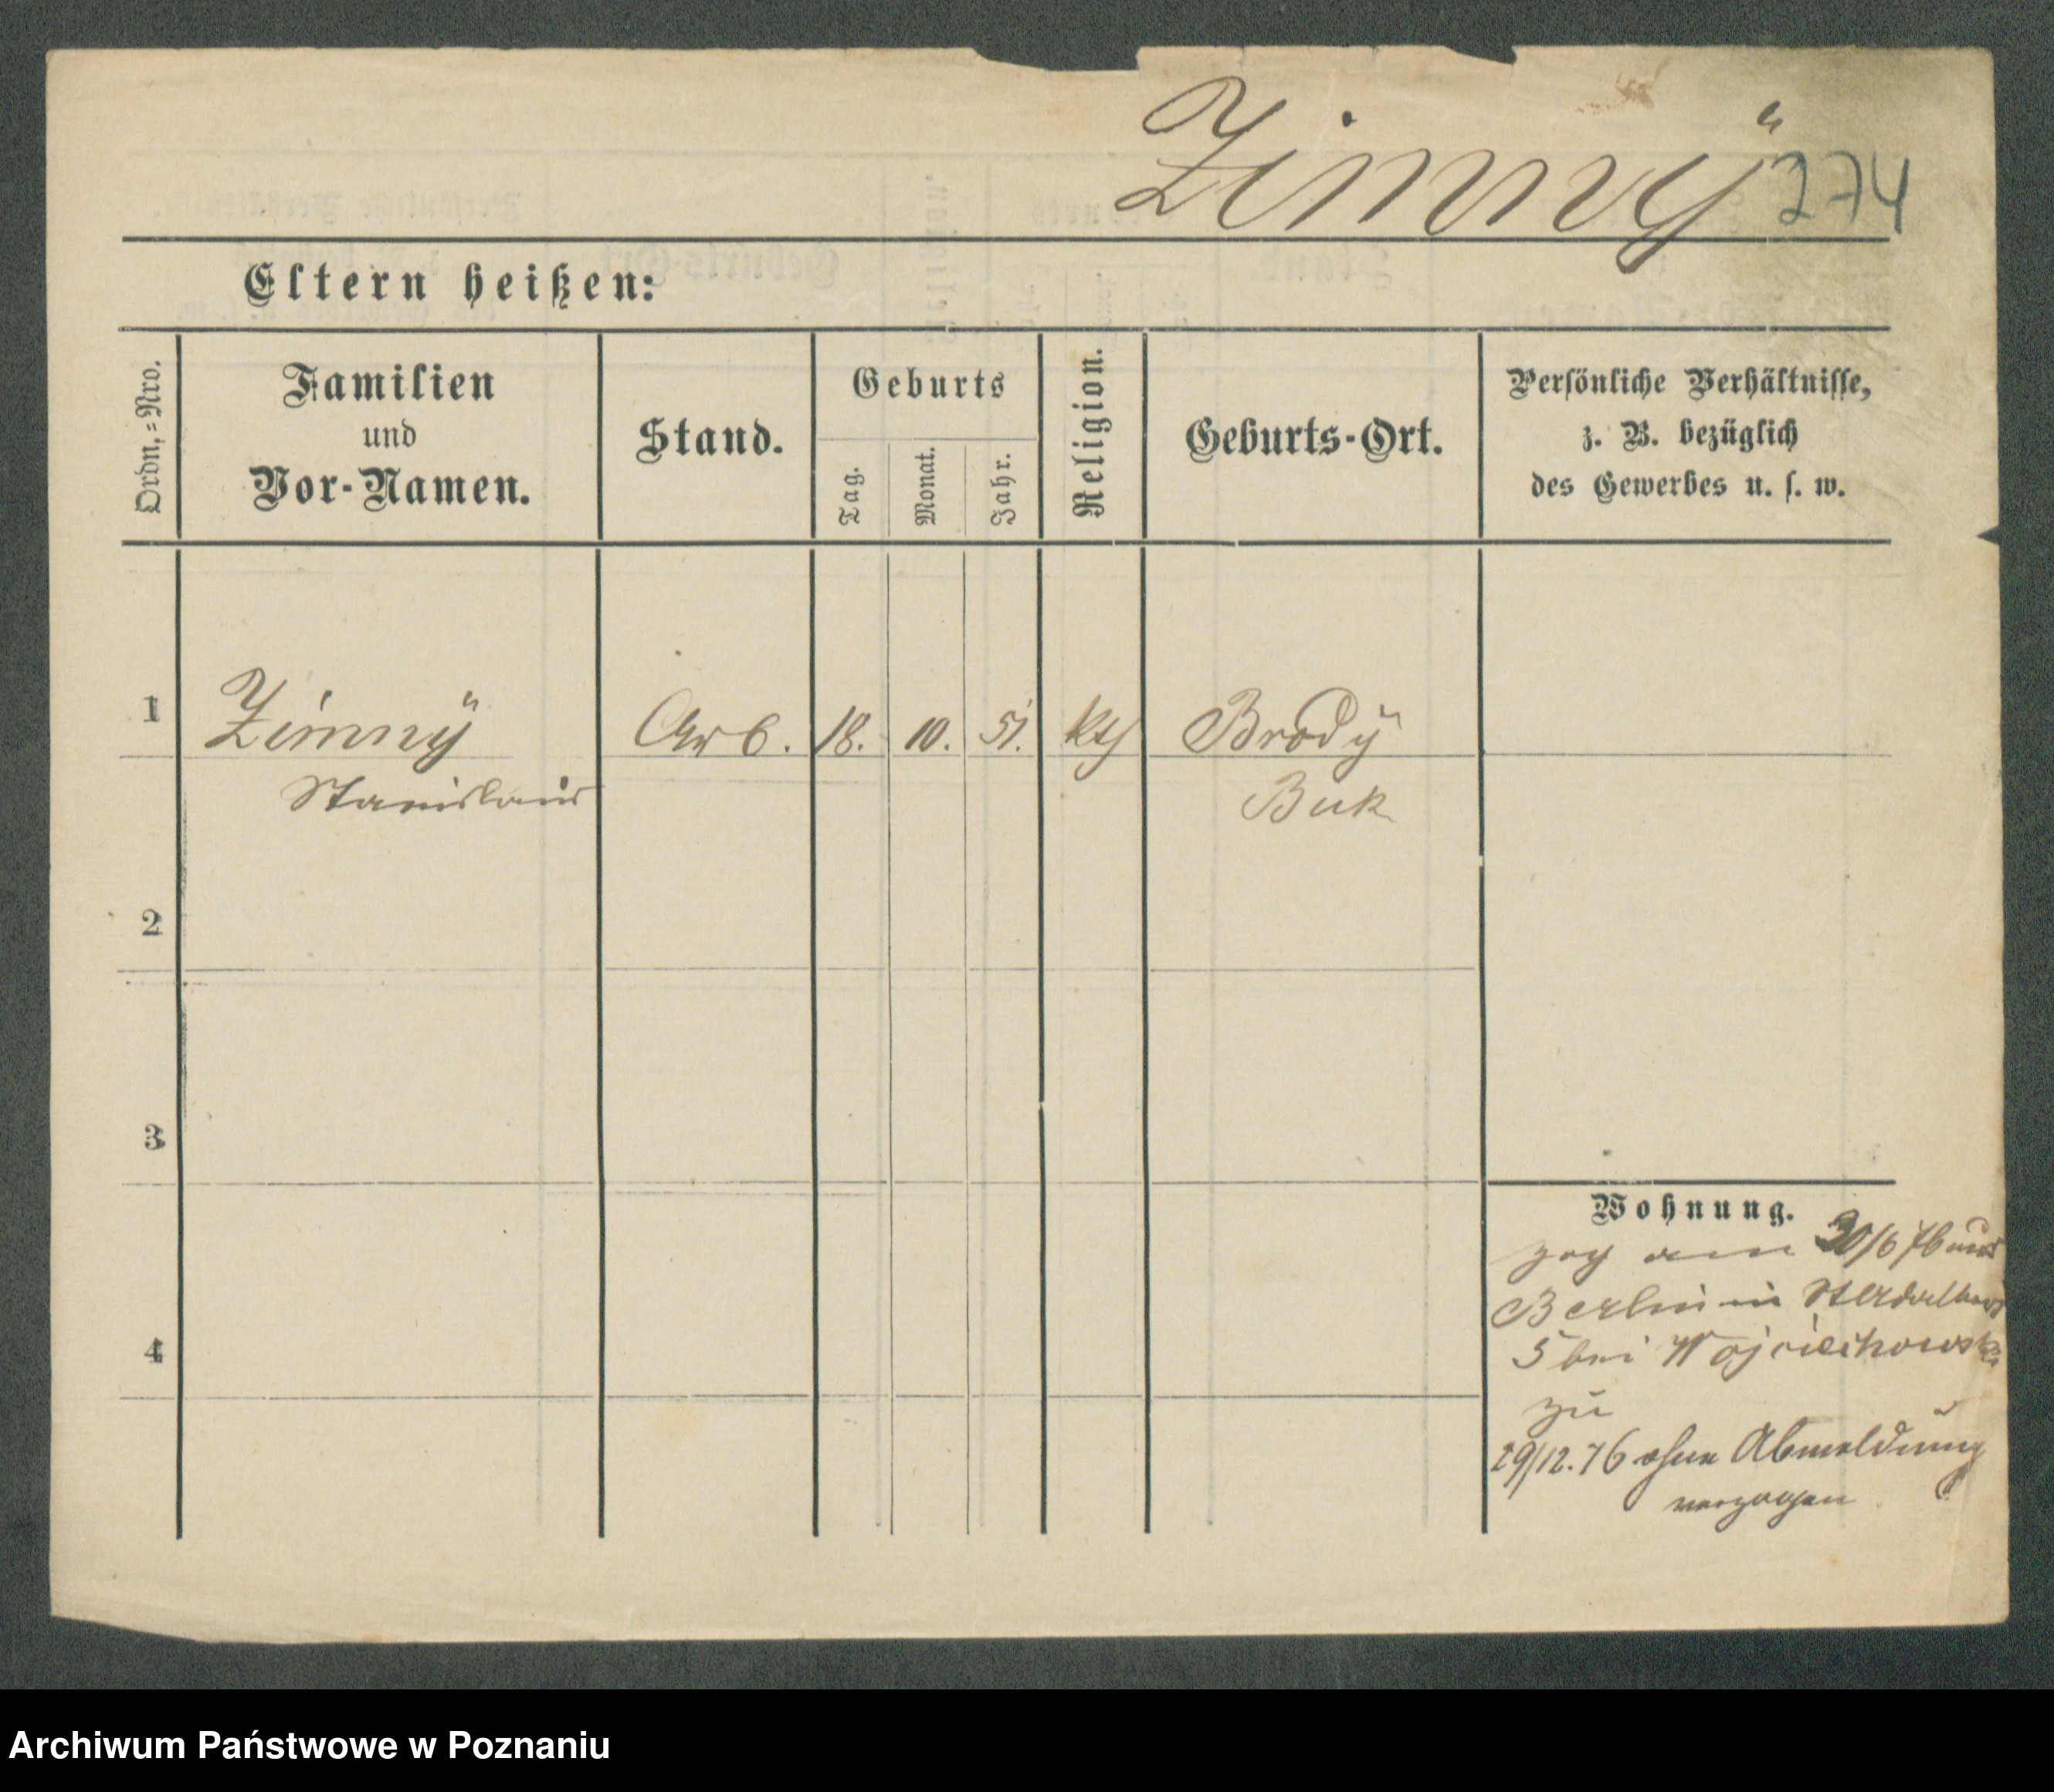 Zimnÿ 274
Eltern heißen:
Ordn.=Nro.
Familien
und
Vor-Namen.
Stand.
Geburts
Tag.
Monat.
Jahr.
Religion.
Geburts-Ort.
Persönliche Verhältnisse,
z. B. bezüglich
des Gewerbes u. s. w.
1 Zimnÿ Arb. 18. 10. 51. kth Brodÿ
Stanislaus Buk
2
3
4
Wohnung.
zog am 30/6 76 aus
Berlin in
5 bei Wojciechowski
zu
29/12.76 ohne Abmeldung
verzogen
Archiwum Państwowe w Poznaniu